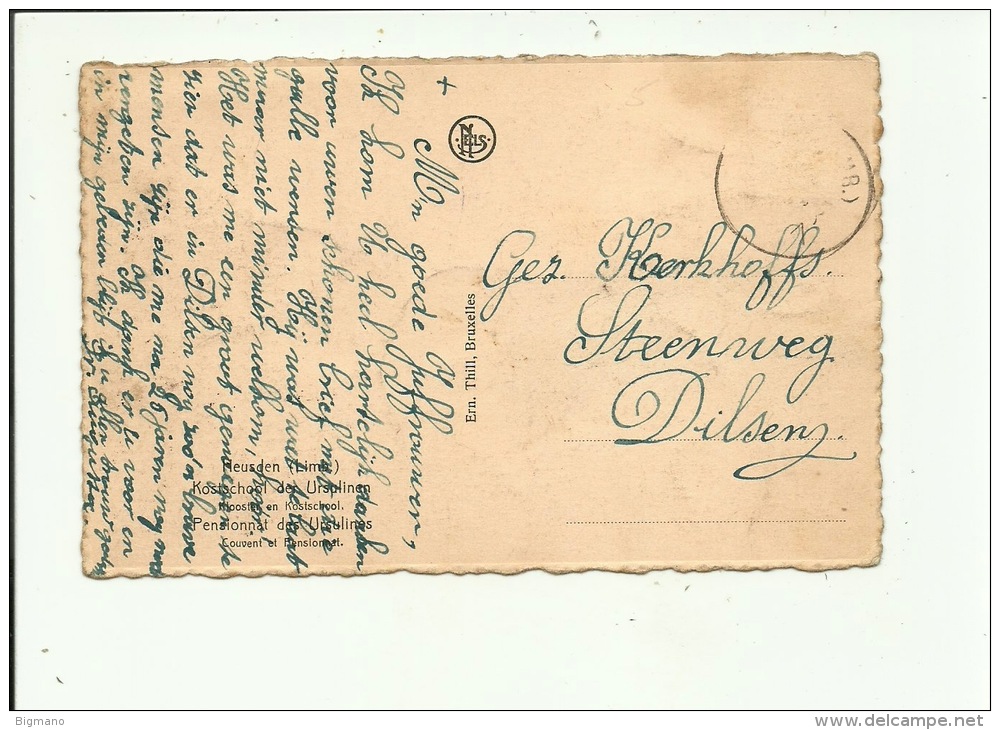 +
M'n goede Juffrouwen,
Ik kom U heel hartelijk danken
voor uwen schonen brief met al die
gulle wensen. Hij was wat te laat
maar niet minder welkom, hoor!
Het was me een groot genoegen te
zien dat er in Dilsen nog zoo'n brave
mensen zijn die me na 25 jaren nog niet
vergeten zijn. Ik dank er U voor en
in mijn gebeden blijf ik u allen trouw
Zr. Augusta.
NELS
Ern. Thill, Bruxelles
Gez. Kerkhoffs.
Steenweg
Dilsen
Heusden (Limb.)
Kostschool der Ursulinen
Klooster en Kostschool.
Pensionnat des Ursulines
Couvent et Pensionnat.
Bigmano
delcampe.net